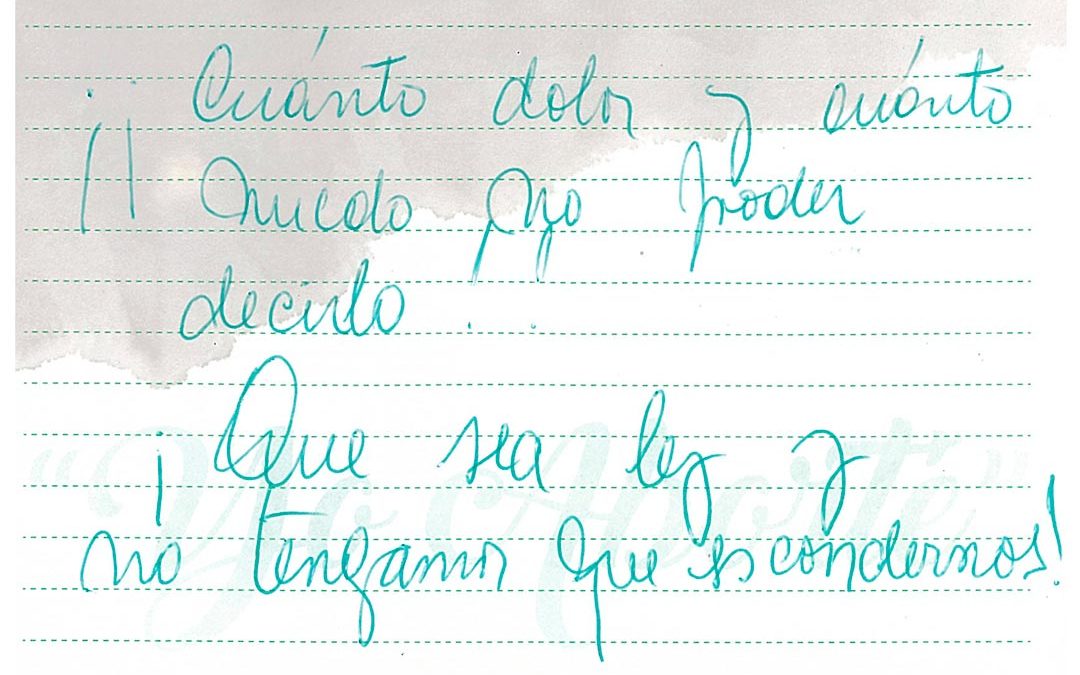 ¡¡ Cuánto dolor y cuánto
miedo no poder
decirlo . .
¡Que sea ley y
no tengamos que escondernos!
“Yo Aborté”